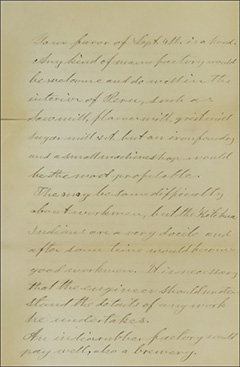 Your favor of Sept. 4th is at hand.
Any kind of manufactory would
be welcome and do well in the
interior of Peru, such as
saw mill, flour mill, grist mill
sugar mill &c. but an iron foundry
and a small machine shop would
be the most profitable.
There may be some difficulty
about workmen, but the Kitchua
Indians are a very docile and
after some time would become
good workmen. It is necessary
that the engineer should under
stand the details of any work
he undertakes.
An india rubber factory would
pay well, also a brewery.